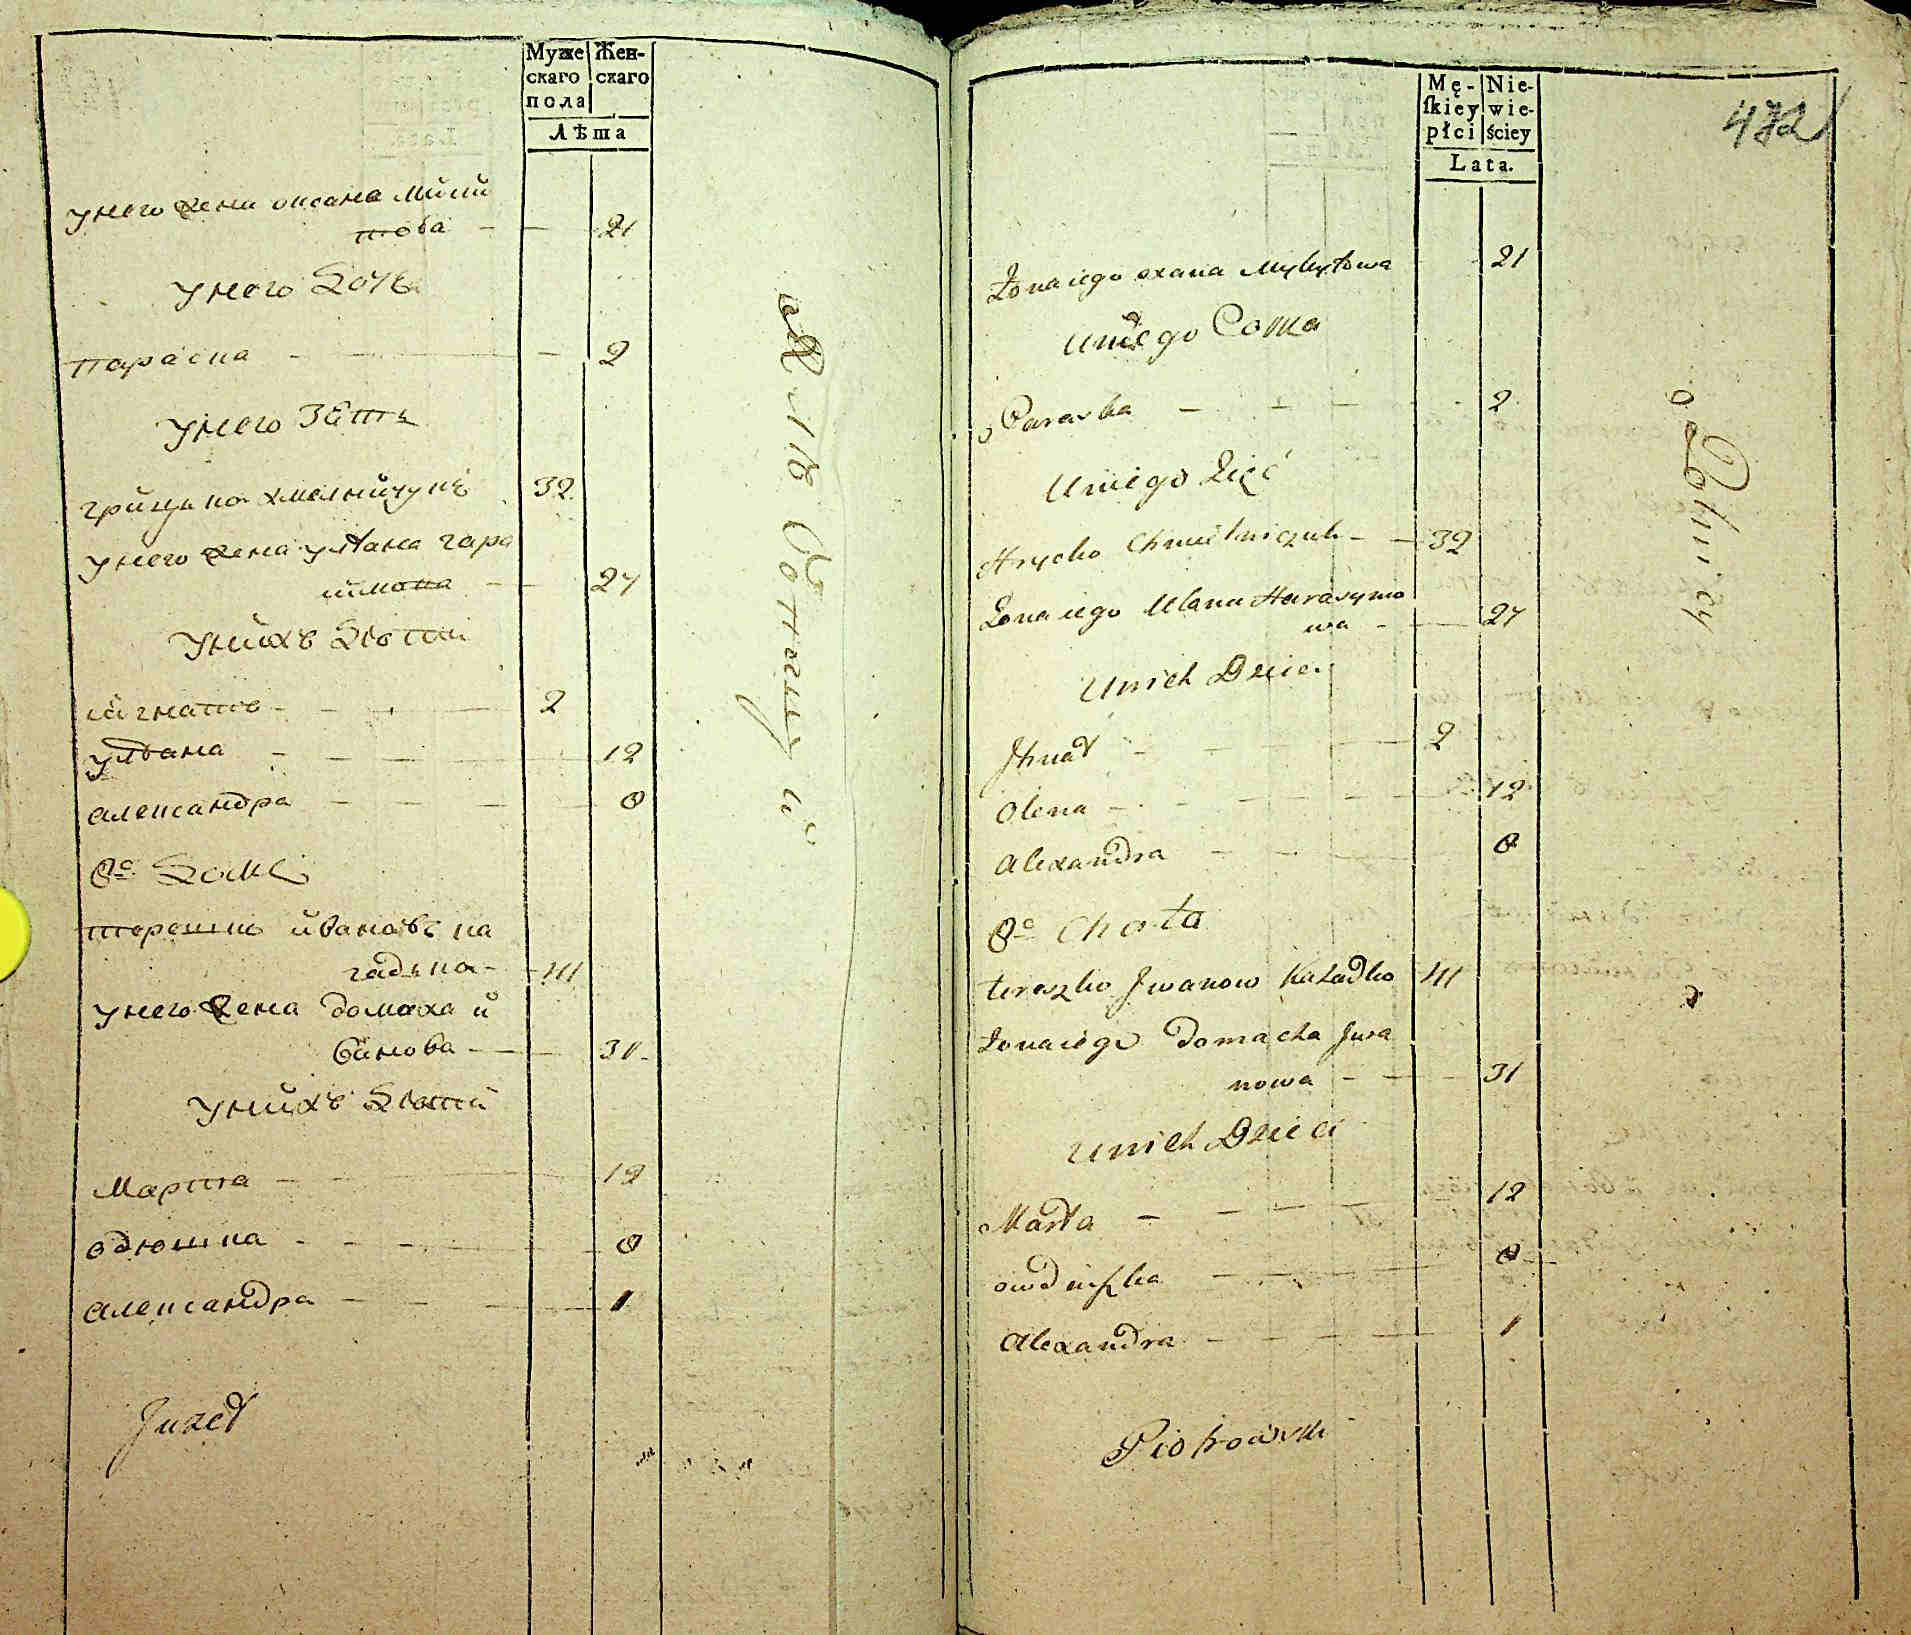 Муже
скаго
пола
Жен-
скаго
Лѣта
унего жена оксана мики
това - - 21
унего Дочь
параска - - - 2
унего Зеть
грицько хмелничукъ 32
унего жена уляна гара
симова - 27
унихъ Дѣти
игнатъ - - - 2
ульана - - - - 12
александра - - - - 8
8е Хати
терешко ивановъ ка
задко - 41
унего жена домаха и
ванова - - 31
унихъ Дѣти
Марта - - - 12
одюшка - - - - 8
александра - - - - 1
Juzef
Mę-
ſkiey
płci
Nie-
wie-
ściey
Lata.
472
Żona iego oxana Mykytowa 21
Uniego Corka
Paraska - - - - 2
Uniego Zięć
Hrycko Chmielniczuk - - 32
Żona iego Ulana Harasymo
wa - - 27
Unich Dzieci
Jhnat - - - - 2
Olena - - - - - 12
Alexandra - - - 8
8e Chata
tereszko Jwanow Kazadko 41
Żona iego Domacha Jwa
nowa - - - 31
Unich Dzieci
Marta - - - - 12
owdiuszka - - - 8
Alexandra - - - - 1
Piotrowski